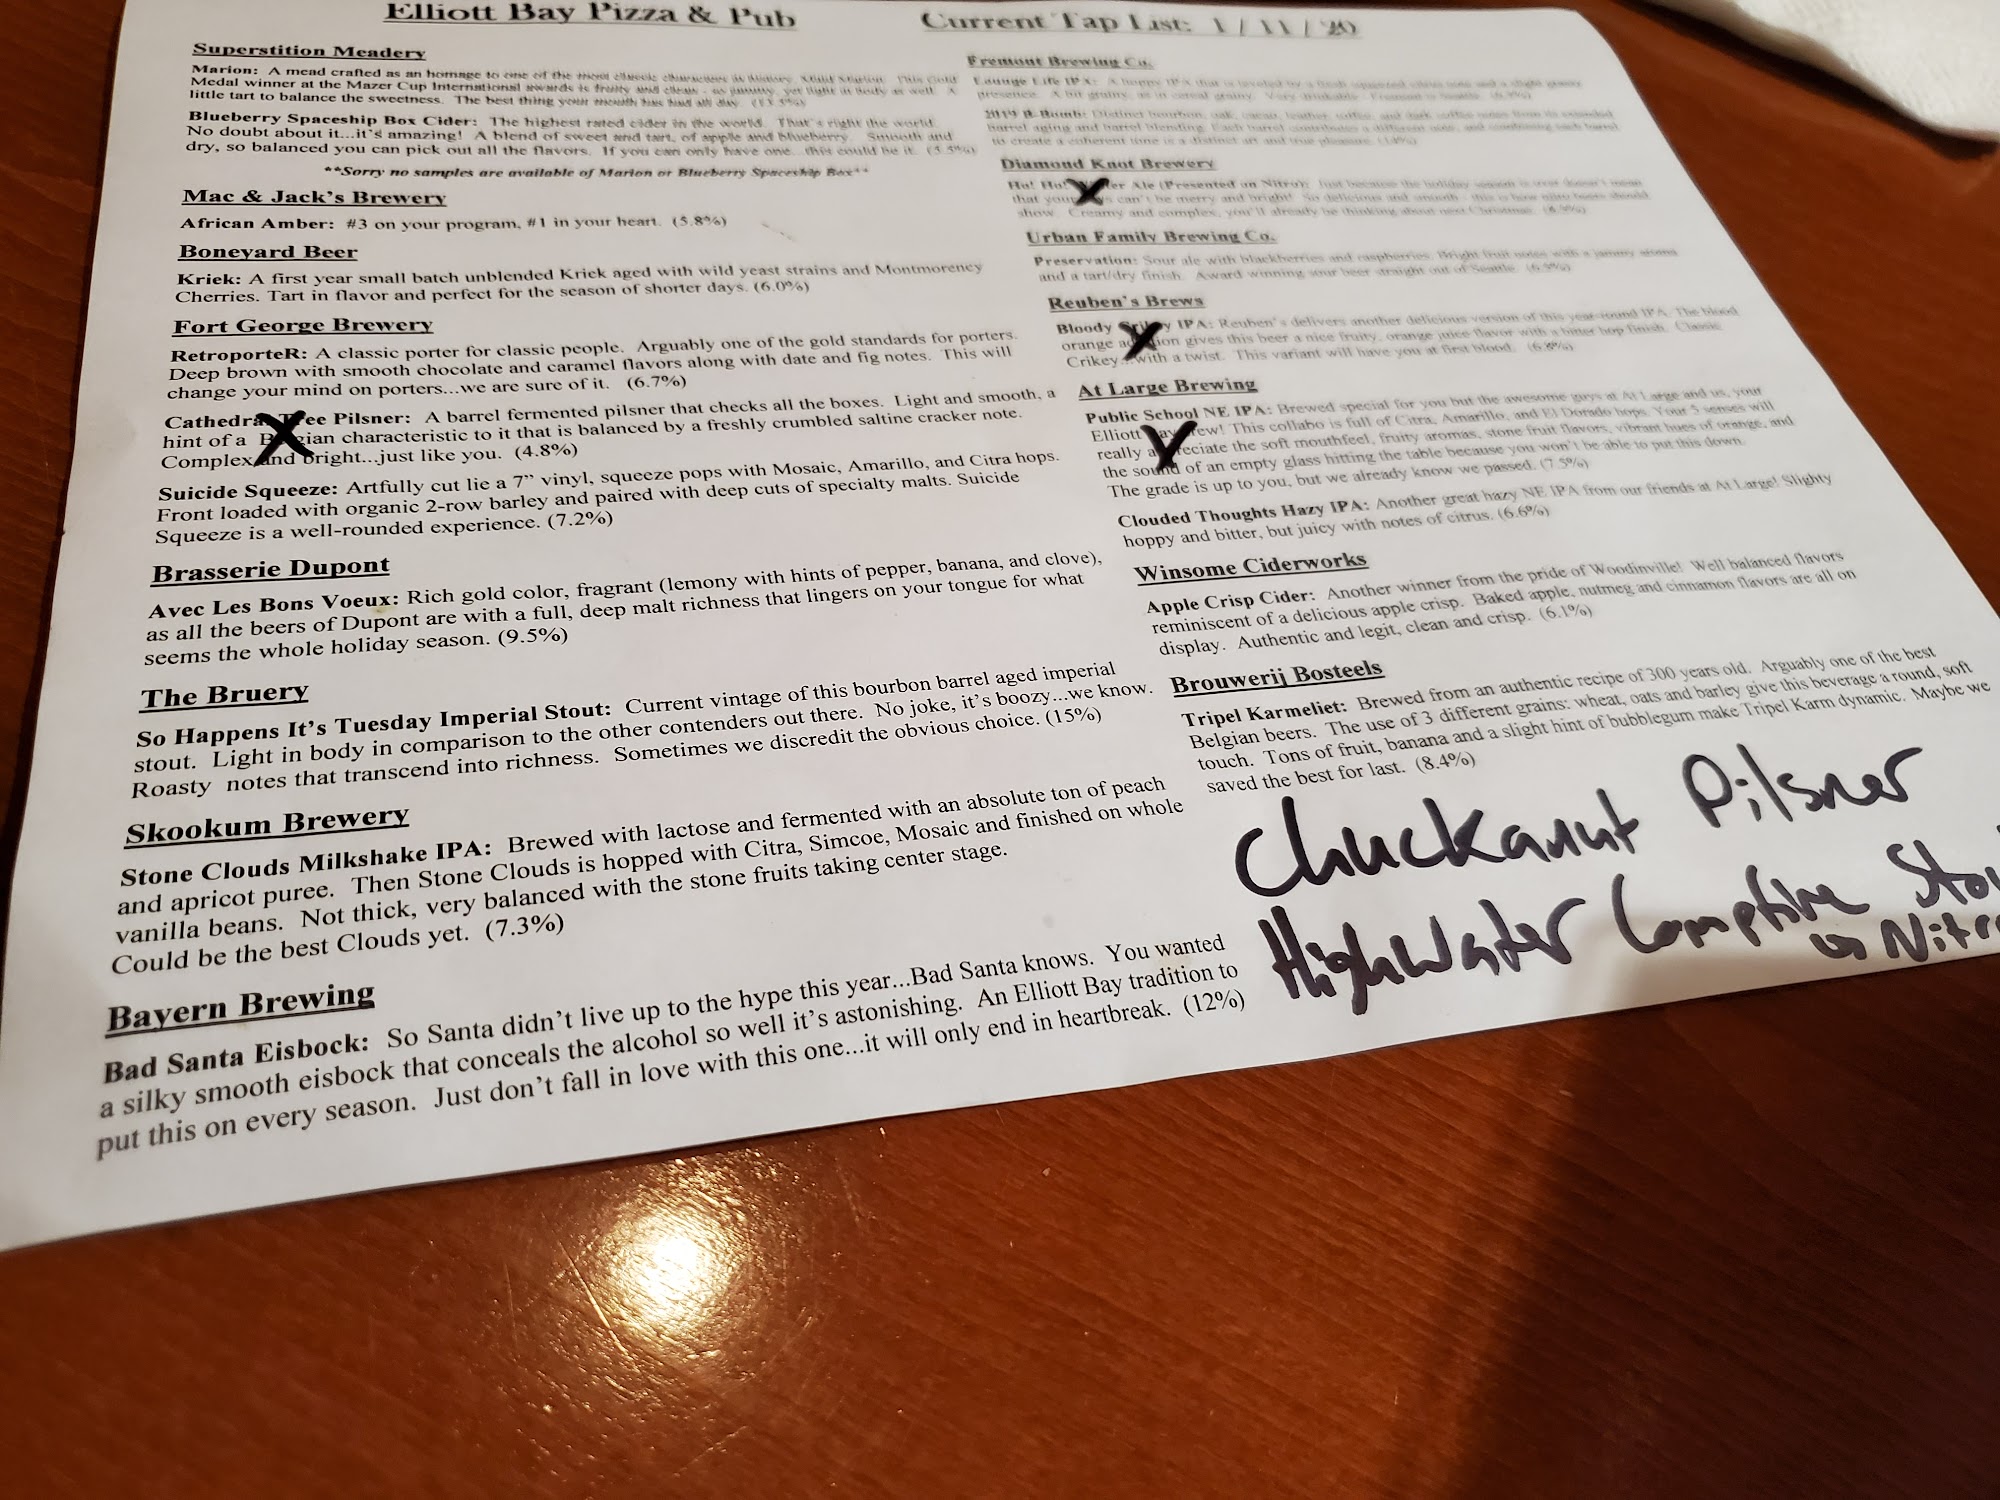 Elliott Bay Pizza & Pub
Current Tap List: 1 / 11 / 20
Superstition Meadery
Marion: A mead crafted as an homage to one of the most classic characters in history, Maid Marion. This Gold
Medal winner at the Mazer Cup International awards is fruity and clean - so jammy, yet light in body as well. A
little tart to balance the sweetness. The best thing your mouth has had all day. (13.5%)
Blueberry Spaceship Box Cider: The highest rated cider in the world. That's right the world.
No doubt about it...it's amazing! A blend of sweet and tart, of apple and blueberry. Smooth and
dry, so balanced you can pick out all the flavors. If you can only have one...this could be it. (5.5%)
**Sorry no samples are available of Marion or Blueberry Spaceship Box**
Mac & Jack's Brewery
African Amber: #3 on your program, #1 in your heart. (5.8%)
Boneyard Beer
Kriek: A first year small batch unblended Kriek aged with wild yeast strains and Montmorency
Cherries. Tart in flavor and perfect for the season of shorter days. (6.0%)
Fort George Brewery
RetroporteR: A classic porter for classic people. Arguably one of the gold standards for porters.
Deep brown with smooth chocolate and caramel flavors along with date and fig notes. This will
change your mind on porters...we are sure of it. (6.7%)
Cathedral Tree Pilsner: A barrel fermented pilsner that checks all the boxes. Light and smooth, a
hint of a Belgian characteristic to it that is balanced by a freshly crumbled saltine cracker note.
Complex and bright...just like you. (4.8%)
Suicide Squeeze: Artfully cut lie a 7" vinyl, squeeze pops with Mosaic, Amarillo, and Citra hops.
Front loaded with organic 2-row barley and paired with deep cuts of specialty malts. Suicide
Squeeze is a well-rounded experience. (7.2%)
Brasserie Dupont
Avec Les Bons Voeux: Rich gold color, fragrant (lemony with hints of pepper, banana, and clove),
as all the beers of Dupont are with a full, deep malt richness that lingers on your tongue for what
seems the whole holiday season. (9.5%)
The Bruery
So Happens It's Tuesday Imperial Stout: Current vintage of this bourbon barrel aged imperial
stout. Light in body in comparison to the other contenders out there. No joke, it's boozy...we know.
Roasty notes that transcend into richness. Sometimes we discredit the obvious choice. (15%)
Skookum Brewery
Stone Clouds Milkshake IPA: Brewed with lactose and fermented with an absolute ton of peach
and apricot puree. Then Stone Clouds is hopped with Citra, Simcoe, Mosaic and finished on whole
vanilla beans. Not thick, very balanced with the stone fruits taking center stage.
Could be the best Clouds yet. (7.3%)
Bayern Brewing
Bad Santa Eisbock: So Santa didn't live up to the hype this year...Bad Santa knows. You wanted
a silky smooth eisbock that conceals the alcohol so well it's astonishing. An Elliott Bay tradition to
put this on every season. Just don't fall in love with this one...it will only end in heartbreak. (12%)
Fremont Brewing Co.
Lounge Life IPA: A hoppy IPA that is leveled by a fresh squeezed citrus note and a slight grainy
presence. A bit grainy, as in cereal grainy. Very drinkable - Fremont is Seattle.
2019 B-Bomb: Distinct bourbon, oak, cacao, leather, coffee, and dark coffee notes from its extended
barrel aging and barrel blending. Each barrel contributes a different note, and combining each barrel
to create a coherent tone is a distinct art and true pleasure. (14%)
Diamond Knot Brewery
Ho! Ho! Winter Ale (Presented on Nitro): Just because the holiday season is over doesn't mean
that your can't be merry and bright! So delicious and smooth - this is how nitro beers should
show. Creamy and complex, you'll already be thinking about next Christmas.
Urban Family Brewing Co.
Preservation: Sour ale with blackberries and raspberries. Bright fruit notes with a jammy aroma
and a tart/dry finish. Award winning sour beer straight out of Seattle. (6.5%)
Reuben's Brews
Bloody Crikey IPA: Reuben's delivers another delicious version of this year-round IPA. The blood
orange addition gives this beer a nice fruity, orange juice flavor with a bitter hop finish. Classic
Crikey...with a twist. This variant will have you at first blood. (6.8%)
At Large Brewing
Public School NE IPA: Brewed special for you but the awesome guys at At Large and us, your
Elliott Bay crew! This collabo is full of Citra, Amarillo, and El Dorado hops. Your 5 senses will
really appreciate the soft mouthfeel, fruity aromas, stone fruit flavors, vibrant hues of orange, and
the sound of an empty glass hitting the table because you won't be able to put this down.
The grade is up to you, but we already know we passed. (7.5%)
Clouded Thoughts Hazy IPA: Another great hazy NE IPA from our friends at At Large! Slighty
hoppy and bitter, but juicy with notes of citrus. (6.6%)
Winsome Ciderworks
Apple Crisp Cider: Another winner from the pride of Woodinville! Well balanced flavors
reminiscent of a delicious apple crisp. Baked apple, nutmeg and cinnamon flavors are all on
display. Authentic and legit, clean and crisp. (6.1%)
Brouwerij Bosteels
Tripel Karmeliet: Brewed from an authentic recipe of 300 years old. Arguably one of the best
Belgian beers. The use of 3 different grains: wheat, oats and barley give this beverage a round, soft
touch. Tons of fruit, banana and a slight hint of bubblegum make Tripel Karm dynamic. Maybe we
saved the best for last. (8.4%)
Chuckanut Pilsner
HighWater Campfire Sto
on Nitr